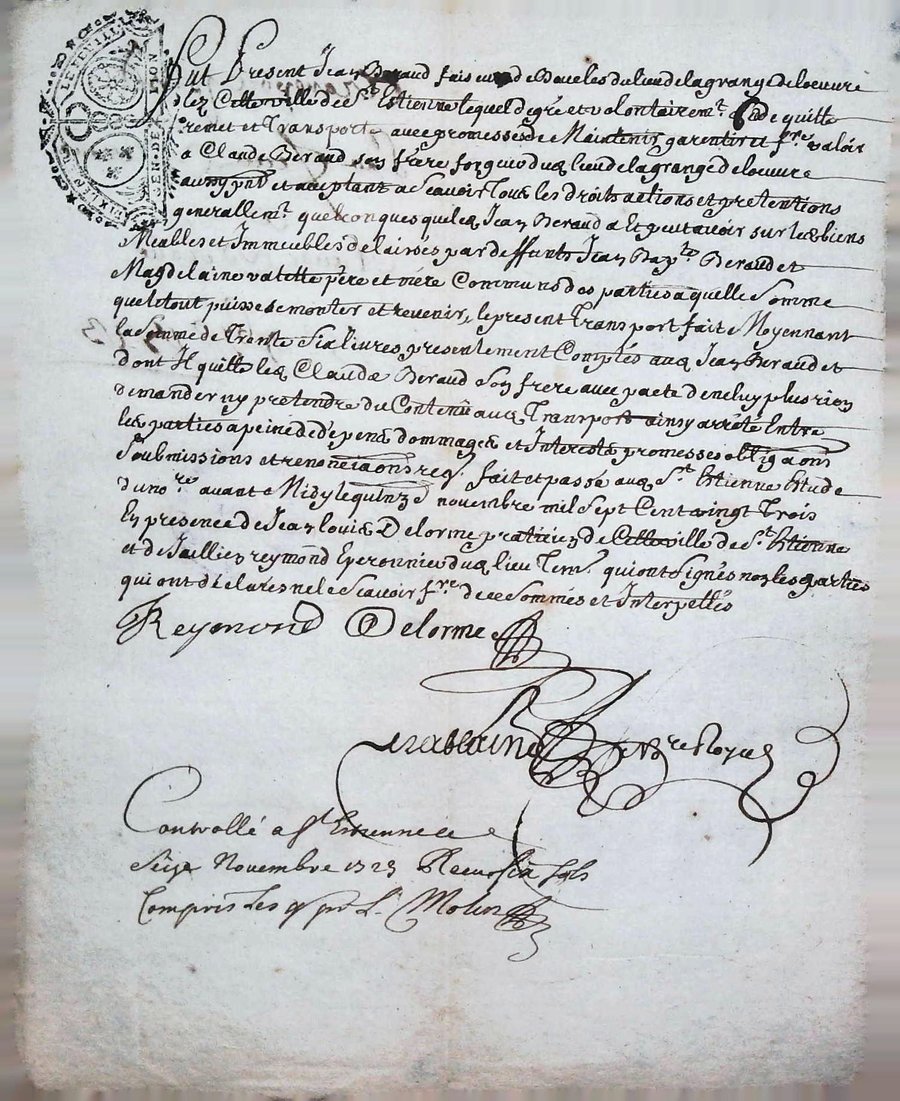 Fut Present Jean Beraud faiseur de Boucles du lieu de la grange de loeuvre
lez Cette ville de St Estienne lequel de gré et volontairemt Cede quitte
remet et Transporte avec promesse de Maintenir garentir et fre valoir
a Claude Beraud son frère forgeur dud lieu de la grange de loeuvre
aussy pnt et acceptant a Scavoir Tous les droits actions et pretentions
generallemt quelconques que led Jean Beraud a Et peut avoir sur les biens
Meubles et Immeubles delaissés par deffunts Jean Bapte Beraud et
Magdelaine valette père et mère Communs des parties a quelle Somme
que le tout puisse se monter et revenir, le present Transport fait Moyennant
la Somme de Trente Six livres presentement Comptés aud Jean Beraud et
dont Il quitte led Claude Beraud Son frere avec pacte de ne luy plus rien
demander ny pretendre du Contenû aud Transport ainsy arrêté Entre
les parties a peine de dépens dommages et Interests promesses obligaons
Soubmissions et renonciaons req. fait et passé aud St Etienne Etude
du nore avant Midy le quinze novembre mil Sept Cent vingt Trois
En presence de Jean louis Delorme praticien de Cette ville de St Etienne
et de Jullien reymond Eperonnier dud lieu Tems qui ont Signés non les parties
qui ont déclarés ne le Scavoir fre de ce Sommés et Interpellés
Reymond Delorme
nre Royal
Controllé a St Etienne ce
Seize Novembre 1723 Receu six sols
Compris les 4 pr L. Molin